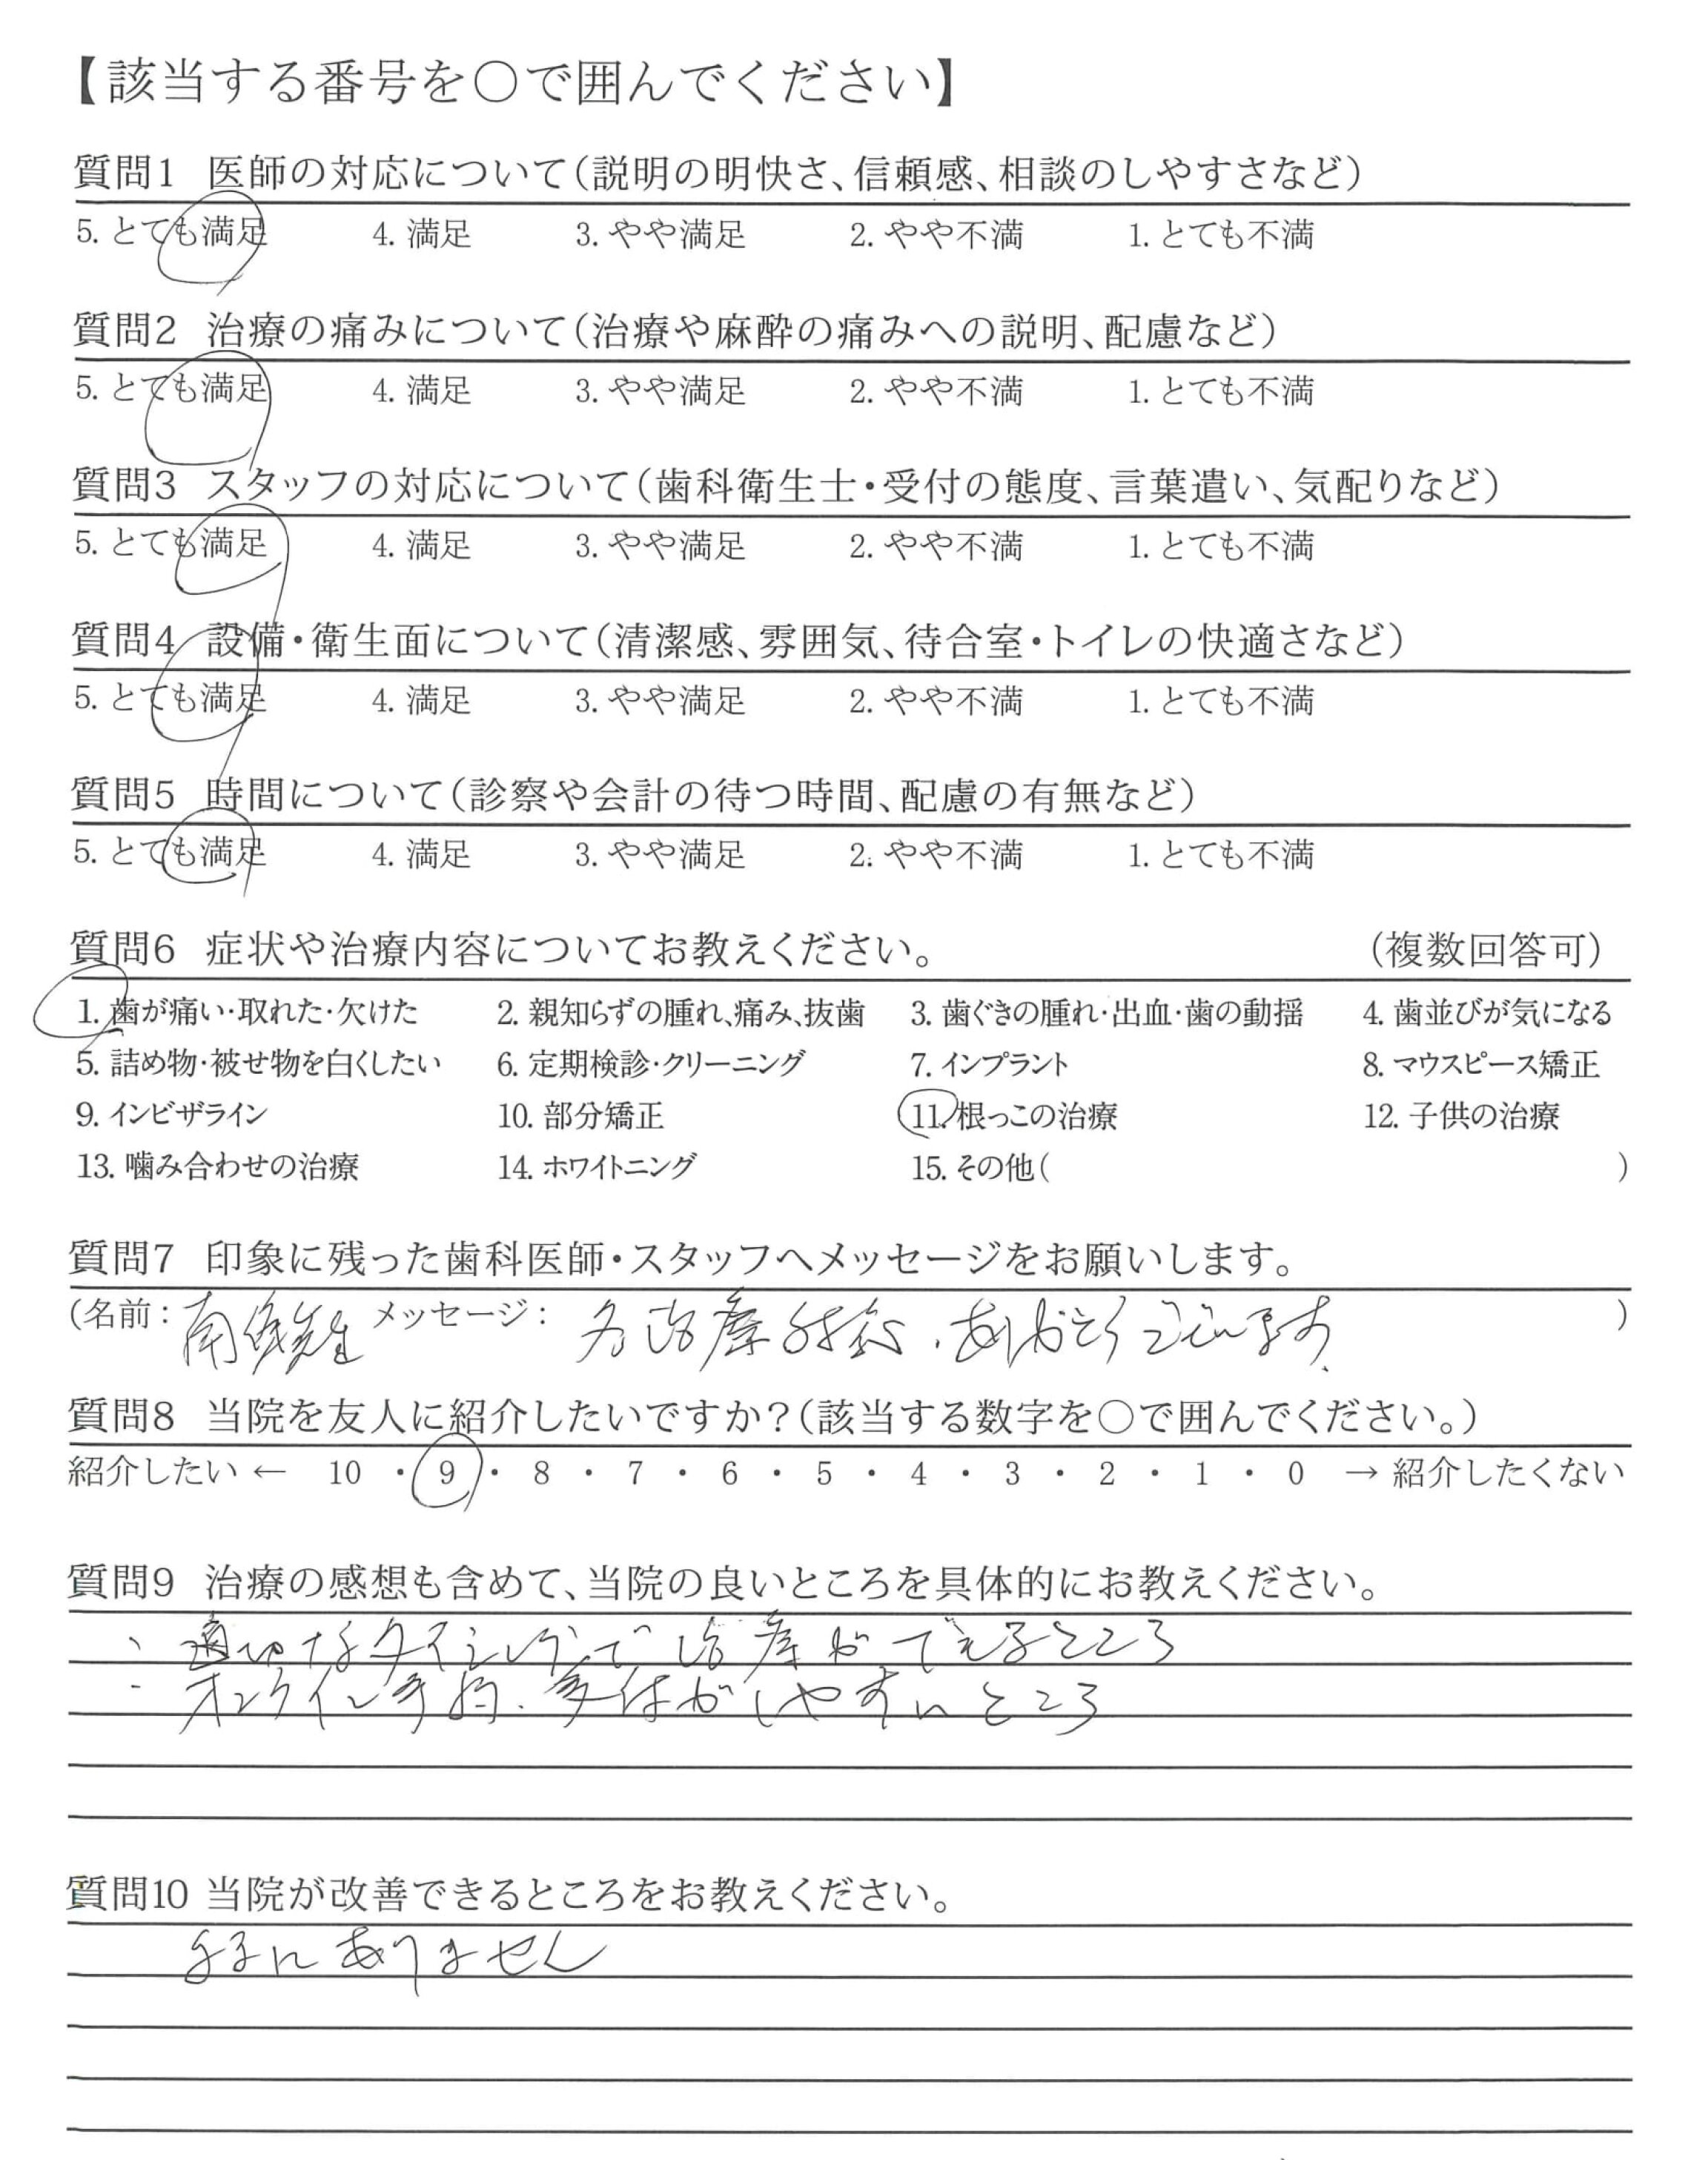 【該当する番号を○で囲んでください】
質問1 医師の対応について(説明の明快さ、信頼感、相談のしやすさなど)
5. とても満足 4. 満足 3. やや満足 2. やや不満 1. とても不満
質問2 治療の痛みについて(治療や麻酔の痛みへの説明、配慮など)
5. とても満足 4. 満足 3. やや満足 2. やや不満 1. とても不満
質問3 スタッフの対応について(歯科衛生士・受付の態度、言葉遣い、気配りなど)
5. とても満足 4. 満足 3. やや満足 2. やや不満 1. とても不満
質問4 設備・衛生面について(清潔感、雰囲気、待合室・トイレの快適さなど)
5. とても満足 4. 満足 3. やや満足 2. やや不満 1. とても不満
質問5 時間について(診察や会計の待つ時間、配慮の有無など)
5. とても満足 4. 満足 3. やや満足 2. やや不満 1. とても不満
質問6 症状や治療内容についてお教えください。 (複数回答可)
1. 歯が痛い・取れた・欠けた 2. 親知らずの腫れ、痛み、抜歯 3. 歯ぐきの腫れ・出血・歯の動揺 4. 歯並びが気になる
5. 詰め物・被せ物を白くしたい 6. 定期検診・クリーニング 7. インプラント 8. マウスピース矯正
9. インビザライン 10. 部分矯正 11. 根っこの治療 12. 子供の治療
13. 噛み合わせの治療 14. ホワイトニング 15. その他( )
質問7 印象に残った歯科医師・スタッフへメッセージをお願いします。
(名前: 先生 メッセージ: ありがとうございます )
質問8 当院を友人に紹介したいですか?(該当する数字を○で囲んでください。)
紹介したい ← 10 ・ 9 ・ 8 ・ 7 ・ 6 ・ 5 ・ 4 ・ 3 ・ 2 ・ 1 ・ 0 → 紹介したくない
質問9 治療の感想も含めて、当院の良いところを具体的にお教えください。
・適切なタイミングで治療ができるところ
・オンライン予約、受付がしやすいところ
質問10 当院が改善できるところをお教えください。
とくにありません